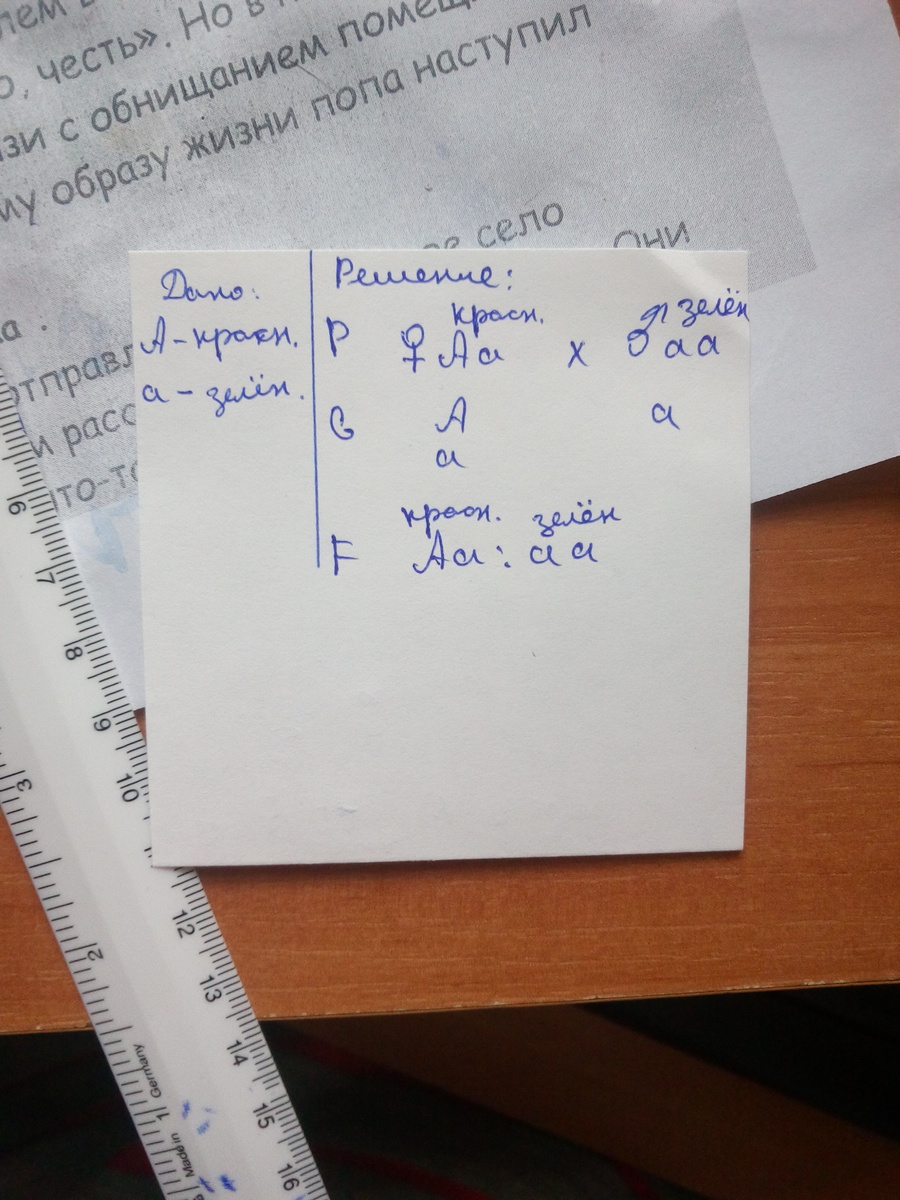 лем в
о, честь». Но в
язи с обнищанием помещ
му образу жизни попа наступил
ое село
Они
а.
отправл
и расс
что-то
Дано:
А - красн.
а - зелён.
Решение:
красн. зелён
Р ♀ Аа х ♂ аа
G А а
а
красн. зелён
F Аа : аа
6
7
8
9
10
12
13
14
15
16
3
2
1
Made in Germany